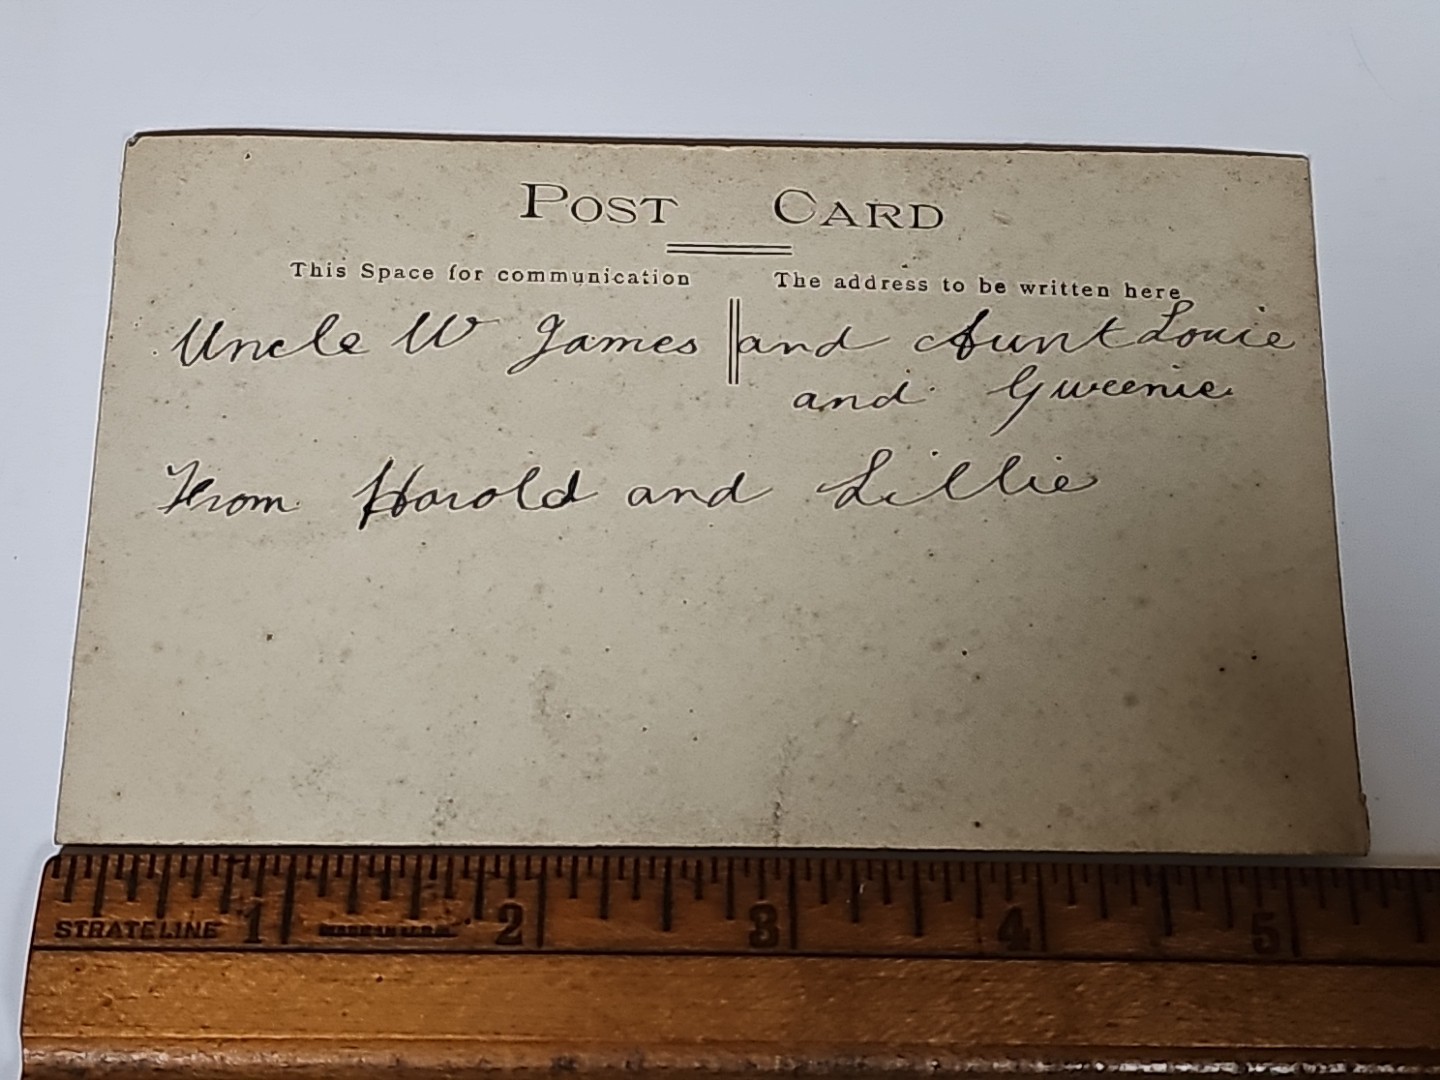 POST CARD
This Space for communication
The address to be written here
Uncle W James and Aunt Louie
and Gweenie
From Harold and Lillie
STRATELINE 1 MADE IN U.S.A. 2 3 4 5